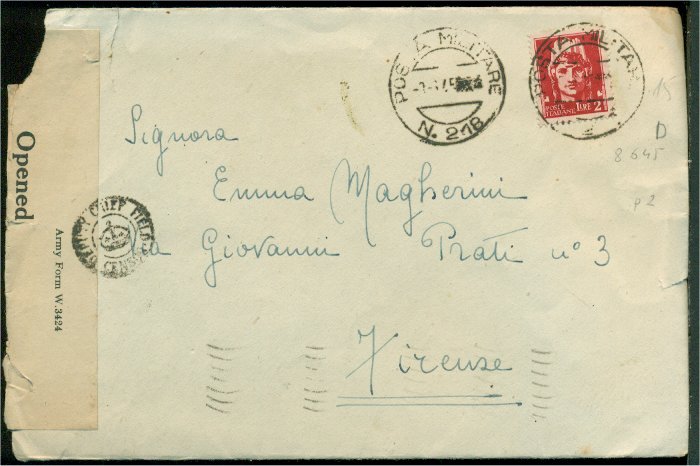 POSTA MILITARE
N. 218
POSTA MILITAR
POSTE
ITALIANE LIRE 2
15
D
8645
p2
Signora
Emma Magherini
Via Giovanni Prati n° 3
Firenze
Opened
Army Form W.3424
CHIEF FIELD